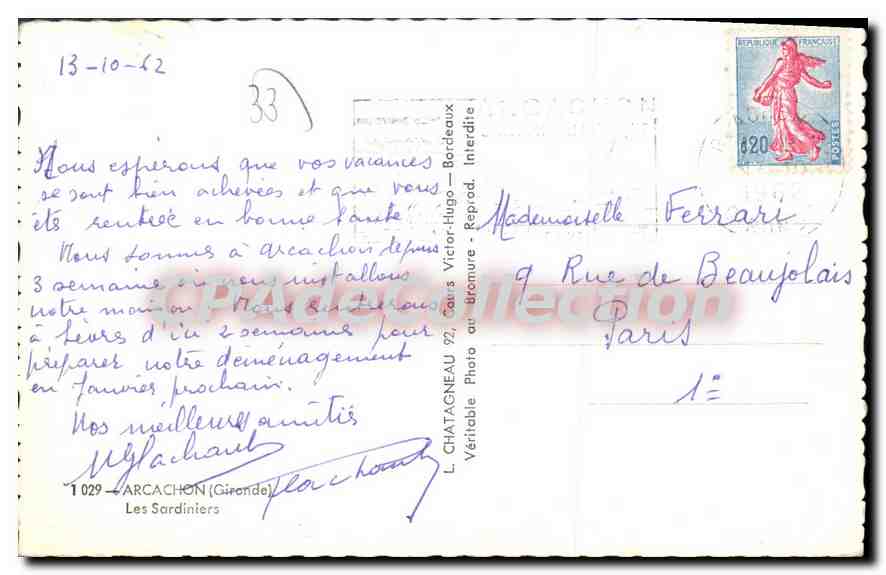 13-10-62
33
Nous espérons que vos vacances
se sont bien achevées et que vous
êts rentrée en bonne santé
Nous sommes à Arcachon depuis
3 semaines où nous installons
notre maison. Nous rentrerons
à Sèvres d'ici 2 semaines pour
préparer notre déménagement
en Janvier prochain.
Nos meilleures amitiés
1 029 - ARCACHON (Gironde)
Les Sardiniers
L. CHATAGNEAU 92, Cours Victor-Hugo - Bordeaux
Véritable Photo au Bromure - Reprod. Interdite
REPUBLIQUE FRANÇAISE
0,20
POSTES
1962
Mademoiselle Ferrari
9 Rue de Beaujolais
Paris
1e
CPAdeCollection